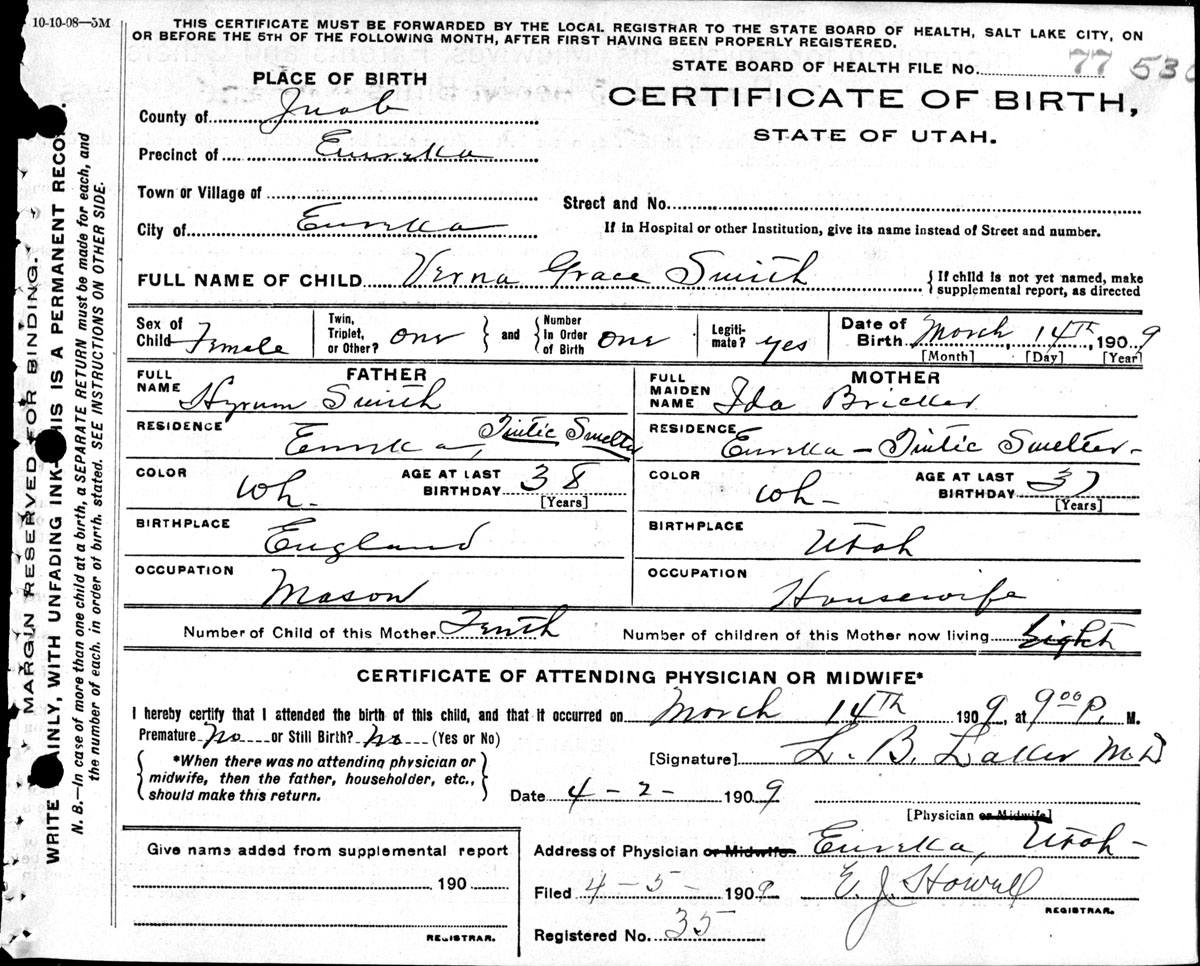 10-10-08—5M
THIS CERTIFICATE MUST BE FORWARDED BY THE LOCAL REGISTRAR TO THE STATE BOARD OF HEALTH, SALT LAKE CITY, ON
OR BEFORE THE 5TH OF THE FOLLOWING MONTH, AFTER FIRST HAVING BEEN PROPERLY REGISTERED.
STATE BOARD OF HEALTH FILE No. 77 530
PLACE OF BIRTH
CERTIFICATE OF BIRTH,
STATE OF UTAH.
County of Juab
Precinct of Eureka
Town or Village of
Street and No.
City of Eureka
If in Hospital or other Institution, give its name instead of Street and number.
FULL NAME OF CHILD Verna Grace Smith
{If child is not yet named, make
supplemental report, as directed
Sex of Child Female
Twin, Triplet, or Other? one } and { Number In Order of Birth one
Legiti- mate? yes
Date of Birth March 14TH, 1909
[Month] [Day] [Year]
FATHER
FULL NAME Hyrum Smith
RESIDENCE Eureka, Tintic Smelter
COLOR Wh-
AGE AT LAST BIRTHDAY 38
[Years]
BIRTHPLACE England
OCCUPATION Mason
MOTHER
FULL MAIDEN NAME Ida
RESIDENCE Eureka - Tintic Smelter-
COLOR Wh-
AGE AT LAST BIRTHDAY 37
[Years]
BIRTHPLACE Utah
OCCUPATION Housewife
Number of Child of this Mother Tenth
Number of children of this Mother now living Eight
CERTIFICATE OF ATTENDING PHYSICIAN OR MIDWIFE*
I hereby certify that I attended the birth of this child, and that it occurred on March 14TH 1909, at 9 00 P. M.
Premature No or Still Birth? No (Yes or No)
{ *When there was no attending physician or
midwife, then the father, householder, etc.,
should make this return. }
[Signature] L. B. M.D
Date 4-2-1909
[Physician or Midwife]
Address of Physician or Midwife Eureka, Utah-
Filed 4-5-1909 E. J. Howell
REGISTRAR.
Registered No. 35
Give name added from supplemental report
190
REGISTRAR.
MARGIN RESERVED FOR BINDING.
WRITE AINLY, WITH UNFADING INK- HIS IS A PERMANENT RECO
N. B.—In case of more than one child at a birth, a SEPARATE RETURN must be made for each, and
the number of each, in order of birth, stated. SEE INSTRUCTIONS ON OTHER SIDE.